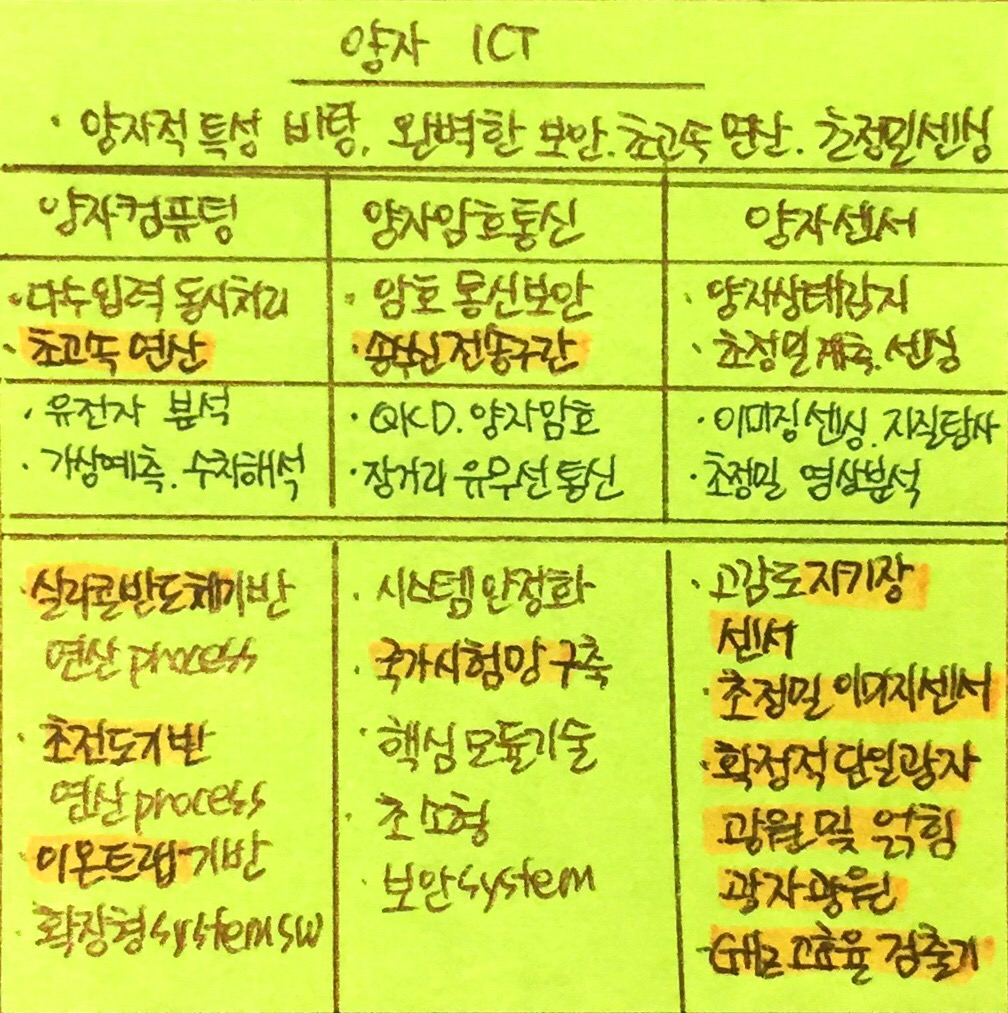 양자 ICT
· 양자적 특성 바탕, 완벽한 보안. 초고속 연산. 초정밀센싱
양자컴퓨팅
양자암호통신
양자센서
· 다수입력 동시처리
· 초고속 연산
· 암호 통신보안
· 송수신 전송구간
· 양자상태감지
· 초정밀계측. 센싱
· 유전자 분석
· 가상예측. 수치해석
· QKD. 양자암호
· 장거리 유무선 통신
· 이미징센싱. 지질탐사
· 초정밀 영상분석
· 실리콘반도체기반
연산 process
· 초전도기반
연산 process
· 이온트랩기반
· 확장형 system SW
· 시스템안정화
· 국가시험망 구축
· 핵심모듈기술
· 초소형
· 보안 system
· 고감도 자기장
센서
· 초정밀 이미지센서
· 확정적 단일광자
광원 및 얽힘
광자광원
· GHz 고효율 검출기